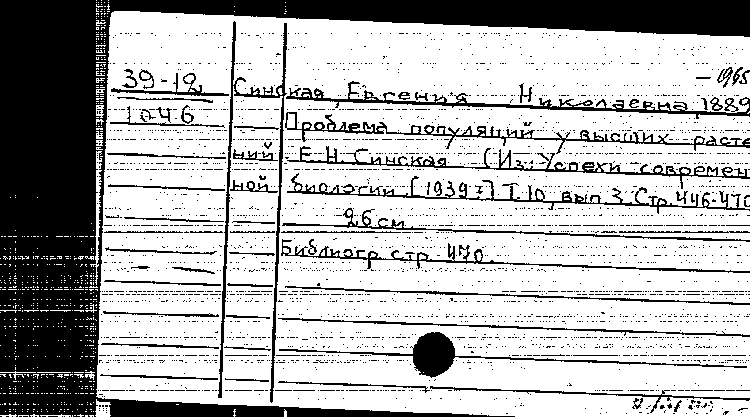 — 1965
39-12 Синская, Евгения Николаевна, 1889
1046 Проблема популяций у высших расте
ний Е. Н. Синская (Из: Успехи современ
ной биологии [1939 г] Т. 10, вып 3. Стр. 446-470
26 см.
Библиогр стр 470.